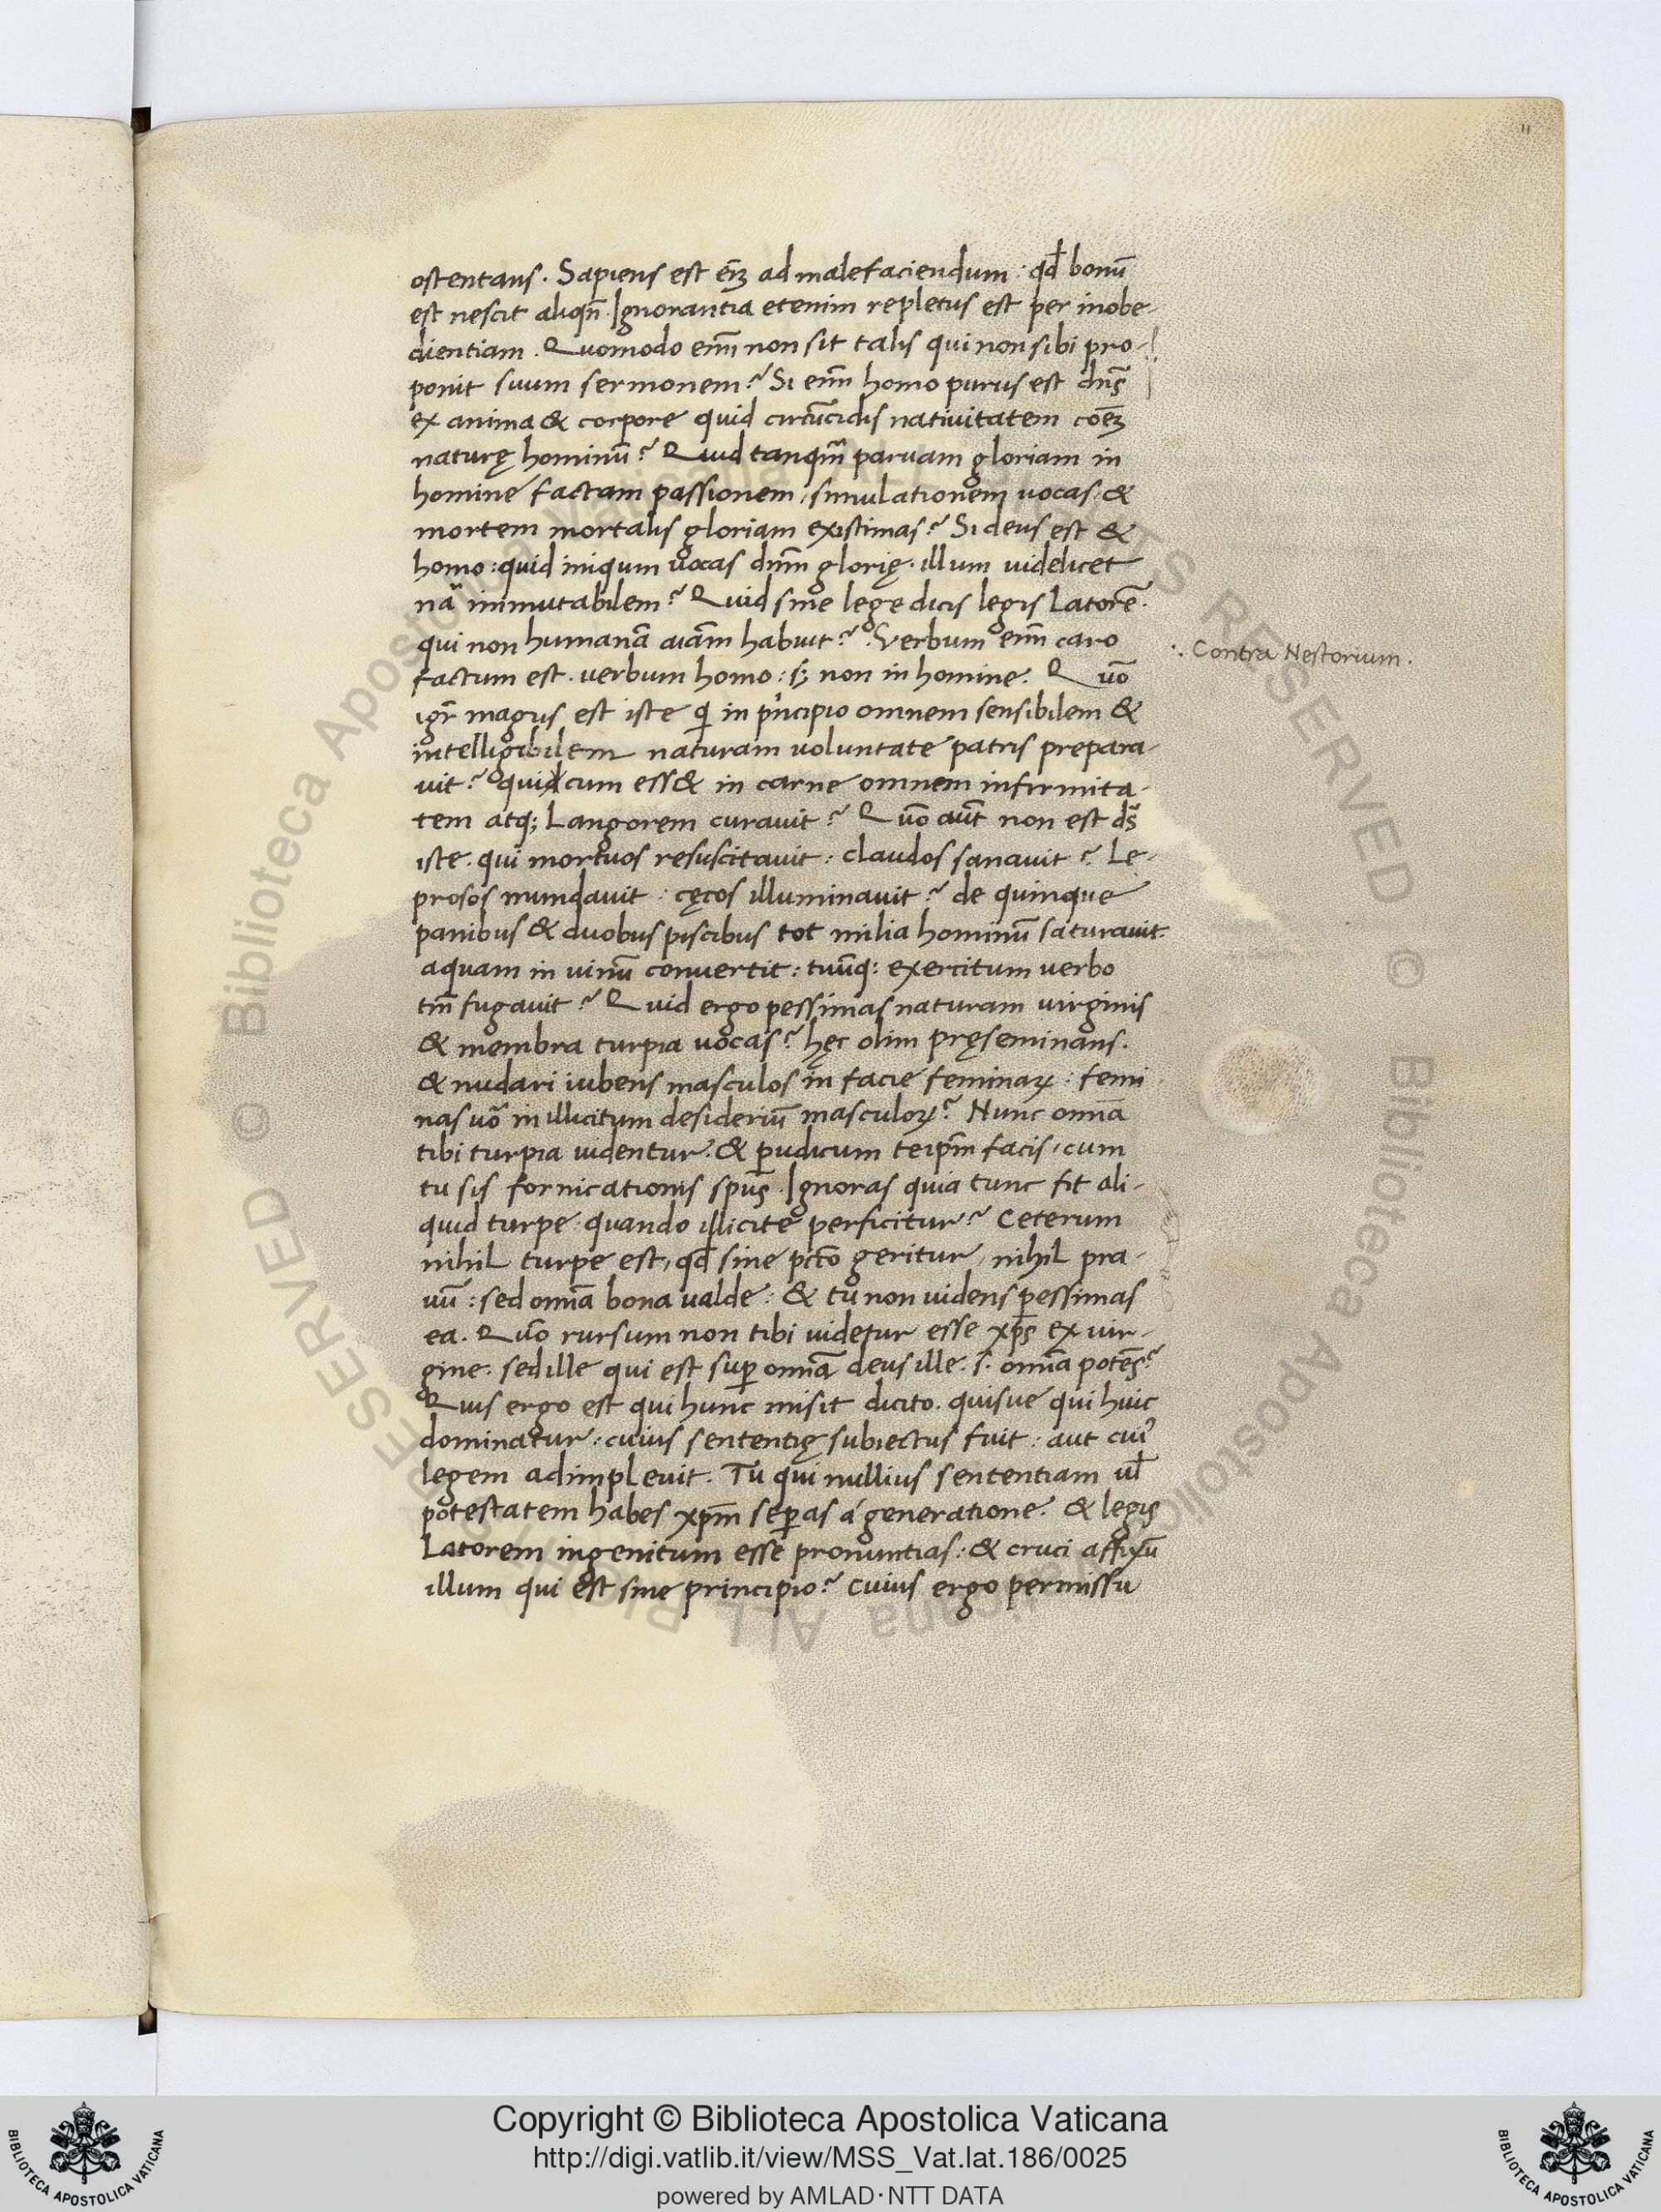 11
ostentans. Sapiens est em̄ ad malefaciendum: qd̄ bonū
est nescit aliqn̄. Ignorantia etenim repletus est per inobe-
dientiam. Quomodo eni̅ non sit talis qui non sibi pro-
ponit suum sermonem? Si eni̅ homo purus est dn̄s
ex anima & corpore quid circūcidis nativitatem coēm
naturę hominū? Quid tanqm̄ parvam gloriam in
homine factam passionem, simulationem vocas, &
mortem mortalis gloriam existimas? Si deus est &
homo: quid iniqum vocas dnm̄ glorię. illum videlicet
nā inmutabilem? Quid sine lege dicis legis Latorē.
qui non humanā aiām habuit? Verbum eni̅ caro
∴ Contra Nestorium.
factum est. verbum homo: s; non in homine. Quō
igr̄ magus est iste qi in pncipio omnem sensibilem &
intelligibilem naturam voluntate patris prepara-
vit? quid cum ess& in carne omnem infirmita-
tem atq; Langorem curavit? Quō aut̄ non est ds̄
iste. qui mortuos resuscitavit: claudos sanavit? Le-
prosos mundavit: cęcos illuminavit? de quinque
panibus & duobus piscibus tot milia hominū saturavit.
aquam in vinū convertit: tuūq: exercitum verbo
tm̄ fugavit? Quid ergo pessimas naturam virginis
& membra turpia vocas? hęc olim pręseminans.
& nudari iubens masculos in facie feminaꝝ: femi
nas uō in illicitum desideriū masculoꝝ? Nunc omīa
tibi turpia videntur. & pudicum teipm̄ facis, cum
tu sis fornicationis spūs. Ignoras quia tunc fit ali-
quid turpe: quando illicite perficitur? Ceterum
nihil turpe est, qd̄ sine pctō geritur, nihil pra-
vū: sed omīa bona valde: & tu non videns ꝑessimas
ea. Quō rursum non tibi videtur esse xp̄s ex vir-
gine: sed ille qui est suꝑ omīa deus ille. s. omīa potēs?
Quis ergo est qui hunc misit dicito. quisve qui huic
dominatur: cuius sententię subiectus fuit: aut cui'
legem adimplevit. Tu qui nullius sententiam ul̄
potestatem habes xpm̄ seꝑas á generatione. & legis
Latorem ingenitum esse pronuntias: & cruci affixū
illum qui est sine principio? cuius ergo permissu
Copyright © Biblioteca Apostolica Vaticana
http://digi.vatlib.it/view/MSS_Vat.lat.186/0025
powered by AMLAD·NTT DATA
BIBLIOTECA APOSTOLICA VATICANA
BIBLIOTECA APOSTOLICA VATICANA